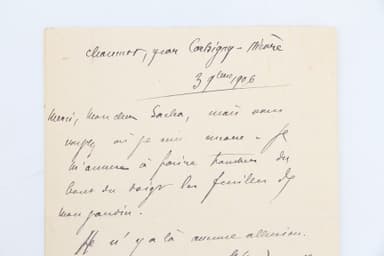 Chaumot, par Corbigny - Nièvre
3 9bre 1906
Merci, mon cher Sacha, mais vous
voyez où je suis encore. Je
m'amuse à faire tomber du
bout du doigt les feuilles de
mon jardin.
Il n'y a là aucune allusion.